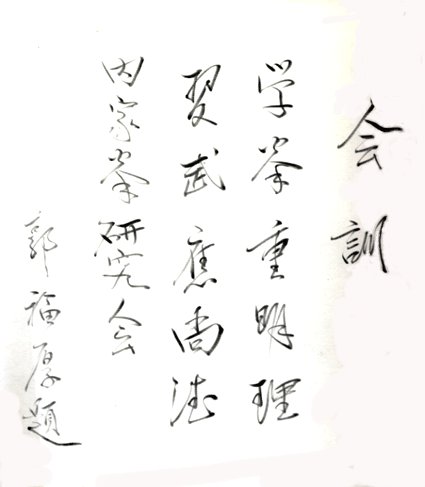 会訓
学拳重明理
習武應尚德
内家拳研究会
郭福厚題